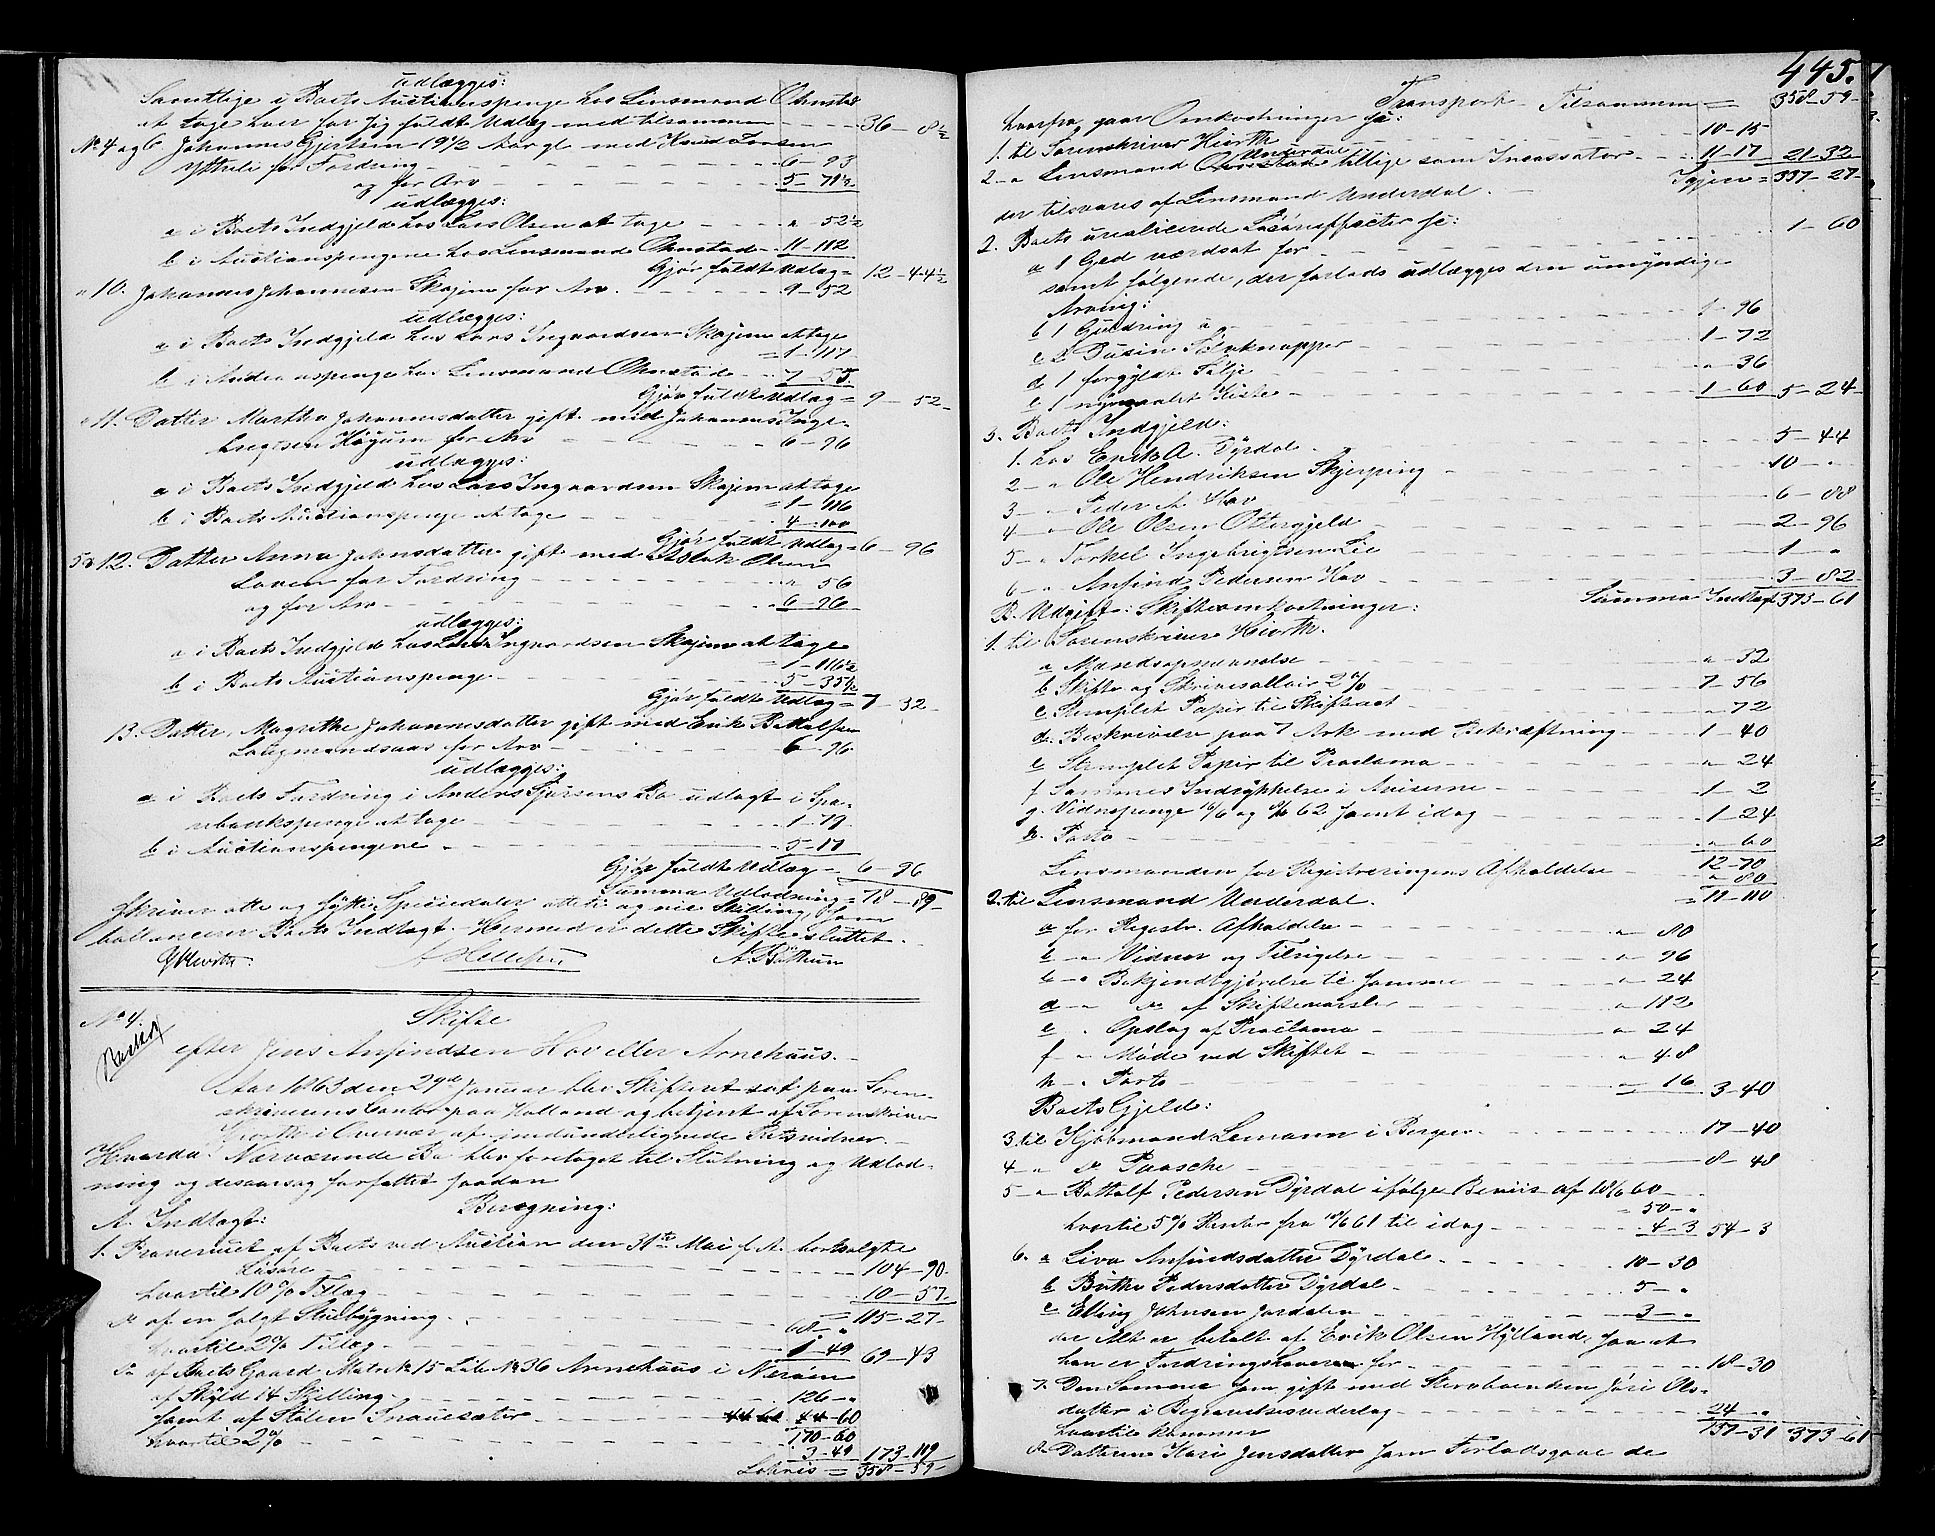 udlægges:
Samtlige i Boets Auctionspenge hos Linsmand Ohnstad
at tage hver for sig fuldt Udlæg med tilsammen - - - 36 - 8½
No 4 og 6 Johannes Gjertsen 19½ Aar gl. med Knud Larsen
Ytreli for Fordring - - - 6 - 93
og for Arv - - - 5 - 71½
udlægges:
a i Boets Indgjeld hos Lars Olsen at tage - - - " - 52½
b i Auctionspengene hos Linsmand Ohnstad - 11 - 112
Gjør fuldt Udlæg = 12 - 44½
" 10. Johannes Johannesen Skajem for Arv. - - - 9 - 52
udlægges:
a i Boets Indgjeld hos Lars Ingvardsen Skajem at tage
= 1 - 117
b i Auctionspenge hos Linsmand Ohnstad - - 7 - 55
Gjør fuldt Udlæg = 9 - 52 -
" 11. Datter Martha Johannesdatter gift med Johannes Inge-
bregtsen Høgum for Arv - - - 6 - 96
udlægges:
a i Boets Indgjeld hos Lars Ingvardsen Skajem at tage
= 1 - 116
b i Boets Auctionspenge at tage - - - 4 - 100
Gjør fuldt Udlæg = 6 - 96
5 & 12. Datter Anna Johansdatter gift med Aslak Olsen
Loven for Fordring - - - " 56
og for Arv - - - 6 - 96
udlægges:
a i Boets Indgjeld hos Lars Ingvardsen Skajem at tage
= 1 - 116½
b i Boets Auctionspenge - - - 5 - 35½
Gjør fuldt Udlæg = 7 - 32 -
13. Datter, Magrethe Johannesdatter gift med Erik Botolfsen
Laugmandsaas for Arv - - - 6 - 96
udlægges:
a i Boets Fordring i Anders Sjursens Bo udlagt i Spa-
rebankspenge at tage - - - 1 - 79
b i Auctionspengene - - - 5 - 17
Gjør fuldt Udlæg - 6 - 96
Summa Udlodning = 78 - 89 -
skriver otte og sytti Speciedaler otteti og nie Skilling, som
ballancerer Boets Indtægt. Hermed er dette Skifte sluttet.
G Hiorth: A Hellesen A. Bøthun
No 4.
Skifte
efter Jens Anfindsen Hov eller Arnehuus. -
Aar 1863 den 29de Januar blev Skifteret sat paa Soren-
skriverens Contor paa Holland og betjent af Sorenskriver
Hiorth i Overvær af undertegnede Retsvidner. -
Hvorda: Nærværende Bo blev foretaget til Slutning og Udlod-
ning og desaarsag forfattet saadan
Beregning:
A. Indtægt:
1. Provenuet af Boets ved Auction den 31te Mai f. A. bortsolgte
Løsøre - - - 104 - 90.
hvortil 10% Tillæg - - - 10 - 57.
= 115 - 27 -
do af en solgt Stuebygning - 68 - "
hvortil 2% Tillæg - 1 - 49 69 - 43
do af Boets Gaard Matr No 15 Løb No 36 Arnehuus i Nerøen
af Skyld 14 Skilling - - - 126 - "
samt af Stølen Snauesæter - - - 44 - 60
170 - 60
hvortil 2% - - - 3 - 49 173 - 119
Latus = 358 - 59 -
445.
Transport - Tilsammen = 358 - 59 -
hvorfra gaar Omkostninger so:
1. til Sorenskriver Hiorth - - - 10 - 15
2 - " Linsmand Underdal tillige som Incassator - - 11 - 17 21 - 32
Igjen = 337 - 27 -
der tilsvares af Linsmand Underdal. -
2. Boets urealicerede Løsøreeffecter so:
a 1 Ged værdsat for - - - 1 - 60
samt følgende, der forlods udlægges den umyndige
Arving:
b 1 Guldring a - - - 1 - 96
c 2 Dusin Sølvknapper - - - 1 - 72
d 1 forgyldt Sølje - - - " 36
e 1 nymalet Kiste - - - 1 - 60 5 - 24 -
3. Boets Indgjeld:
1. hos Erik A. Dyrdal - - - 5 - 44
2 - " Ole Hendriksen Skjerping - - - 10 - "
3 - " Peder A. Hov - - - 6 - 88
4 - " Ole Olsen Ottergjeld - - - 2 - 96
5 - " Torkel Ingebrigtsen Lie - - - 1 - "
6 - " Anfind Pedersen Hov - - - 3 - 82
Summa Indtægt 373 - 61
B. Udgift: Skifteomkostninger:
1. til Sorenskriver Hiorth.
a Mandsopnævnelse - - - " - 32
b Skifte og Skriversallair 2% - - - 7 - 56
c Stemplet Papir til Skiftnet - - - " - 72
d. Beskrivelse paa 7 Ark med Bekræftning - - - 1 - 40
e Stemplet Papir til Proclama - - - " 24
f Sammes Indrykkelse i Aviserne - - - 1 - 2
g. Vidnepenge 10/6 og 62 samt idag - - - 1 - 24
h. Porto - - - " 60
12 - 70
Linsmanden for Registreringens Afholdelse - - - " 80
= 11 - 110
2. til Linsmand Underdal.
a for Registr. Afholdelse - - - " 80
b - " Vidner og Tilsigelse - - - " 96
c - " Bekjendtgjørelse til samme - - - " 24
d - " do af Skiftevarsler - - - " 112
e " Opslag af Proclama - - - " 24
f " Møde ved Skiftet - - - " 48
h " Porto - - - " 16 3 - 40
Boets Gjeld:
3. til Kjøbmand Lemann i Bergen - - - 17 - 40
4 - " do Paasche - - - 8 - 48
5 - " Bottolf Pedersen Dyrdal ifølge Beviis af 18/6 60 -
= 50 - "
hvortil 5% Renter fra 18/6 61 til idag - - - 4 - 3 54 - 3
6. a Liva Anfindsdatter Dyrdal - - - 10 - 30
b Brithe Pedersdatter Dyrdal - - - 5 - "
c Elling Johnsen Jordalen - - - 3 - "
der Alt er betalt af Erik Olsen Hylland, saa at
han er Fordringshaver for - - - 18 - 30
7. Den Samme som gift med Stervboenken Jori Ols-
datter i Begravelsesvederlag - - - 24 - "
157 - 31 373 - 61
hvortil kommer
8. Datteren Kari Jensdatter som Forlodsgave de